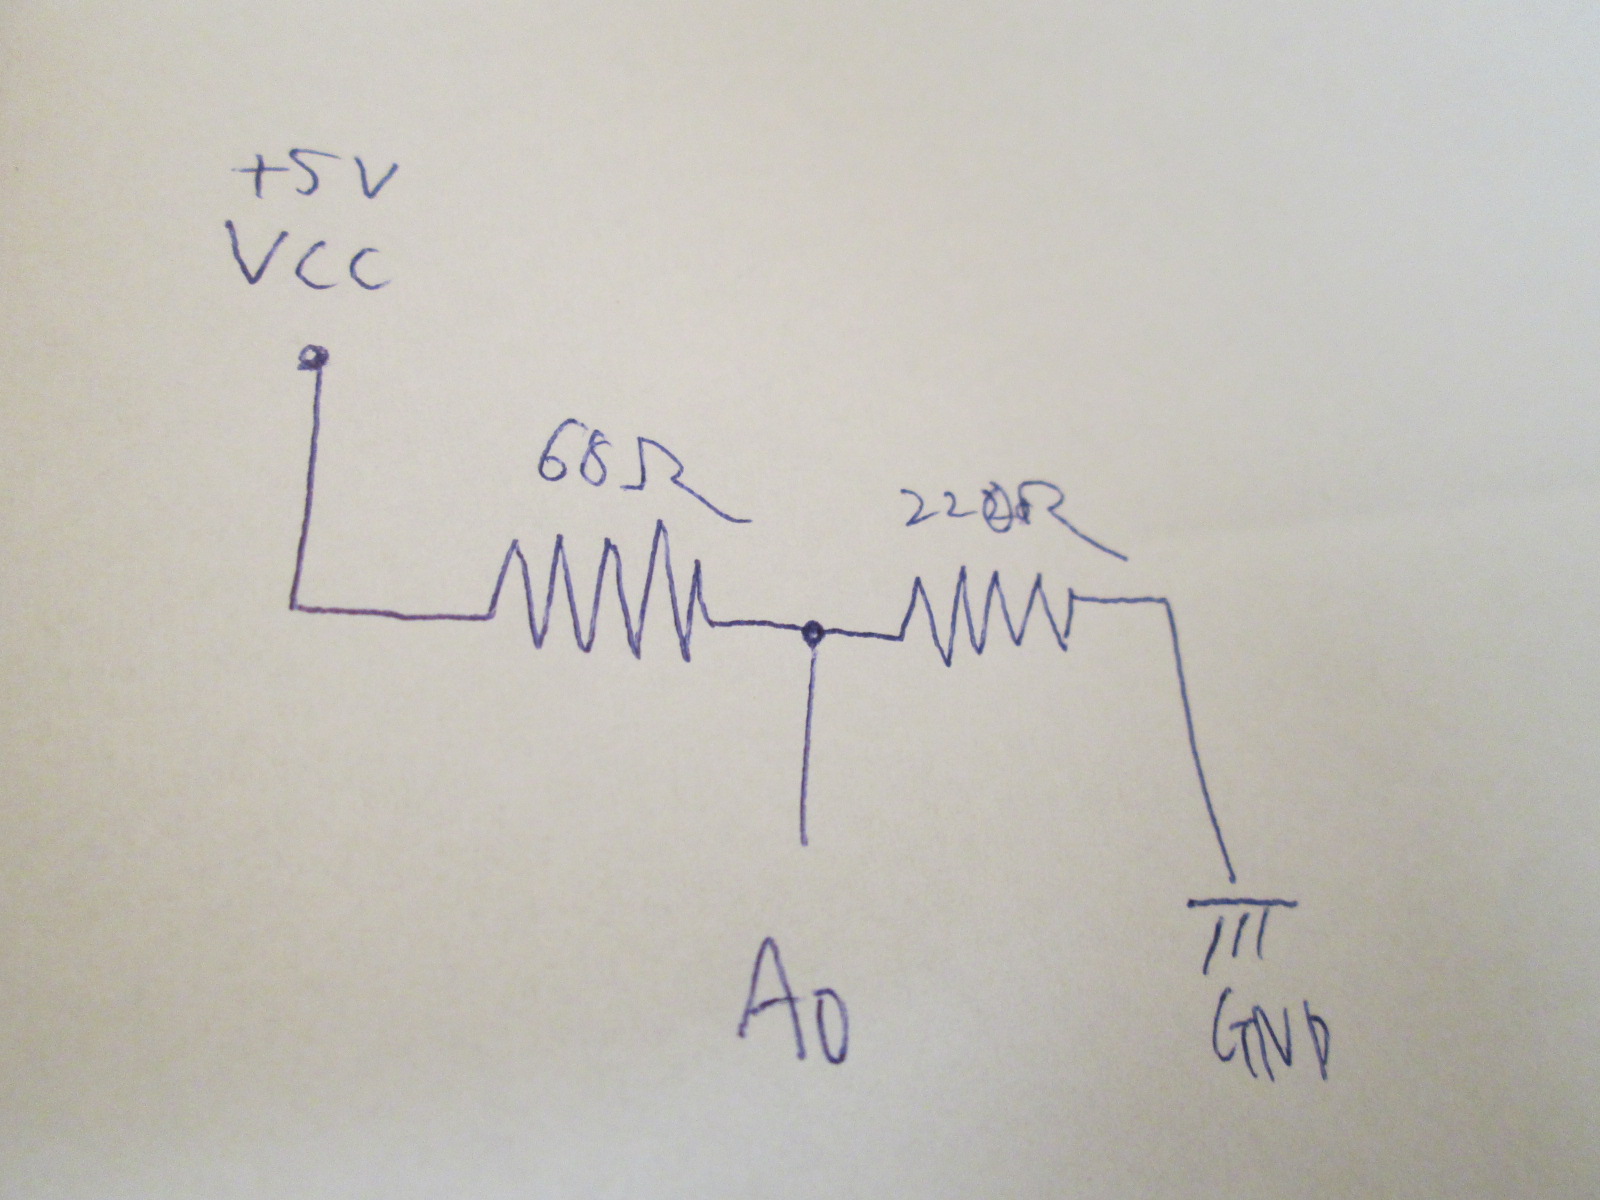 +5V
VCC
68Ω
220Ω
A0
GND